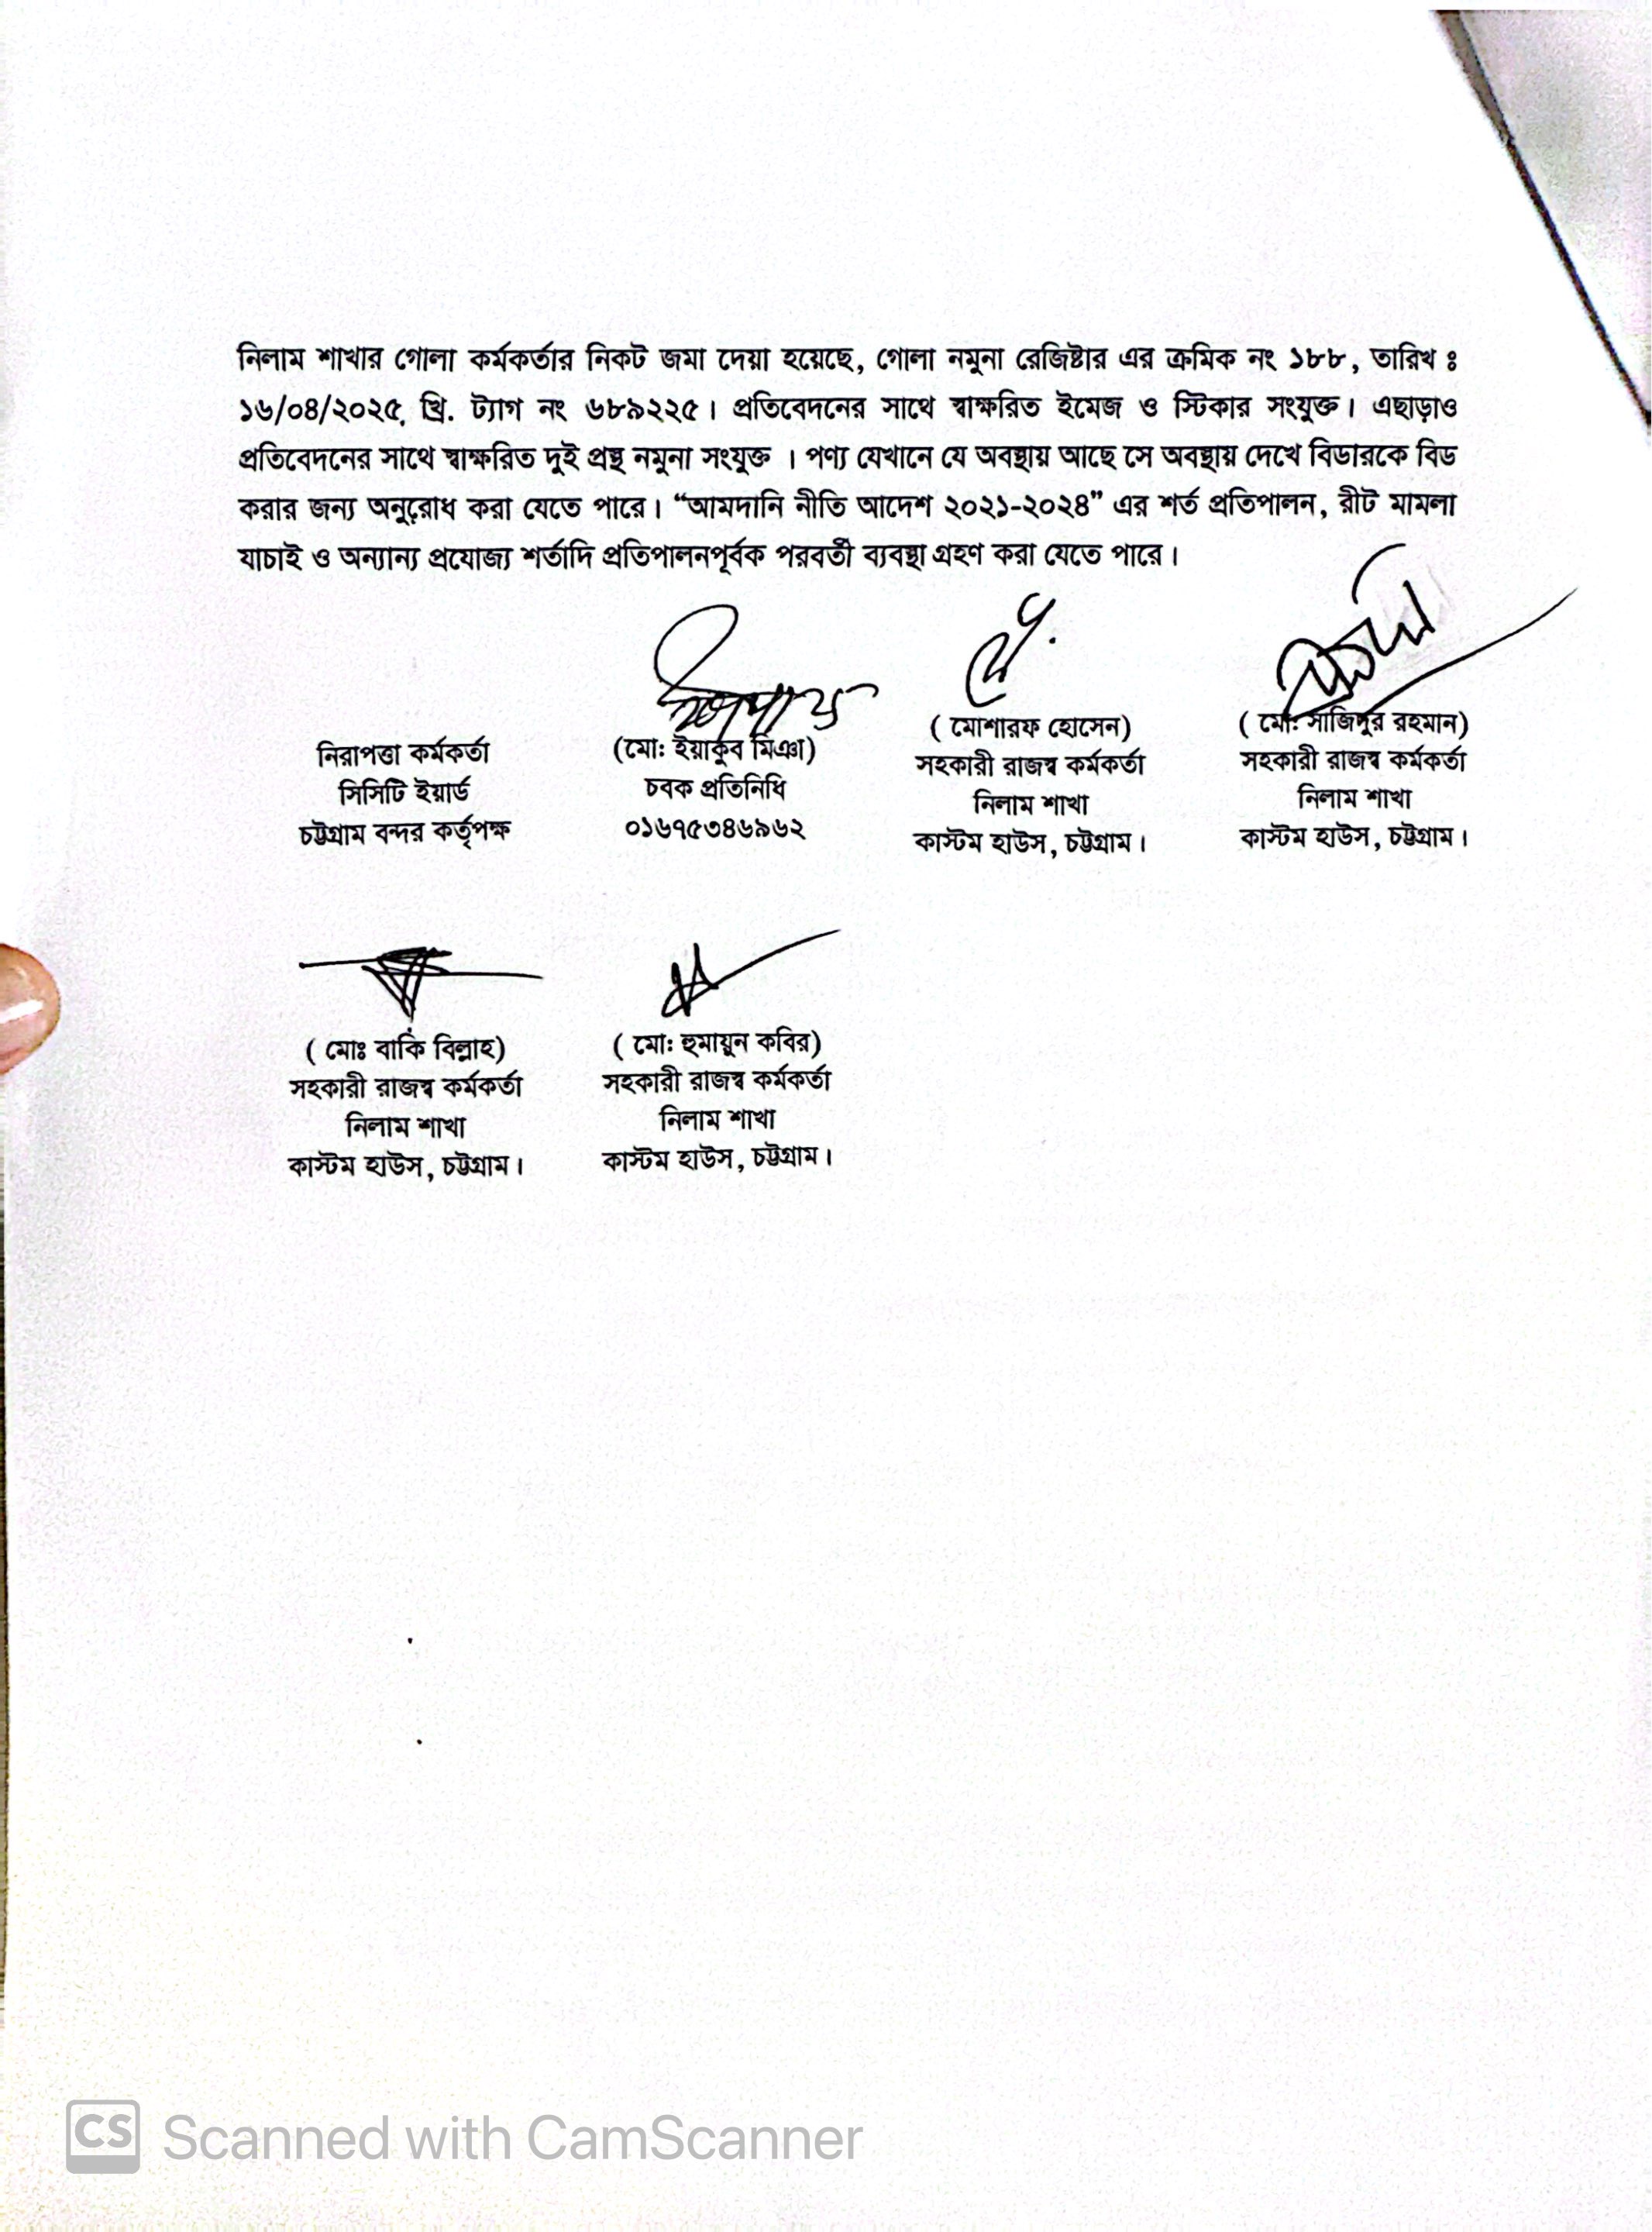 নিলাম শাখার গোলা কর্মকর্তার নিকট জমা দেয়া হয়েছে, গোলা নমুনা রেজিষ্টার এর ক্রমিক নং ১৮৮, তারিখ ঃ
১৬/০৪/২০২৫ খ্রি. ট্যাগ নং ৬৮৯২২৫। প্রতিবেদনের সাথে স্বাক্ষরিত ইমেজ ও স্টিকার সংযুক্ত। এছাড়াও
প্রতিবেদনের সাথে স্বাক্ষরিত দুই প্রস্থ নমুনা সংযুক্ত । পণ্য যেখানে যে অবস্থায় আছে সে অবস্থায় দেখে বিডারকে বিড
করার জন্য অনুরোধ করা যেতে পারে। “আমদানি নীতি আদেশ ২০২১-২০২৪” এর শর্ত প্রতিপালন, রীট মামলা
যাচাই ও অন্যান্য প্রযোজ্য শর্তাদি প্রতিপালনপূর্বক পরবর্তী ব্যবস্থা গ্রহণ করা যেতে পারে।
নিরাপত্তা কর্মকর্তা
সিসিটি ইয়ার্ড
চট্টগ্রাম বন্দর কর্তৃপক্ষ
(মো: ইয়াকুব মিঞা)
চবক প্রতিনিধি
০১৬৭৫৩৪৬৯৬২
( মোশারফ হোসেন)
সহকারী রাজস্ব কর্মকর্তা
নিলাম শাখা
কাস্টম হাউস, চট্টগ্রাম।
( মো: সাজিদুর রহমান)
সহকারী রাজস্ব কর্মকর্তা
নিলাম শাখা
কাস্টম হাউস, চট্টগ্রাম।
( মোঃ বাকি বিল্লাহ)
সহকারী রাজস্ব কর্মকর্তা
নিলাম শাখা
কাস্টম হাউস, চট্টগ্রাম।
( মো: হুমায়ুন কবির)
সহকারী রাজস্ব কর্মকর্তা
নিলাম শাখা
কাস্টম হাউস, চট্টগ্রাম।
CS Scanned with CamScanner